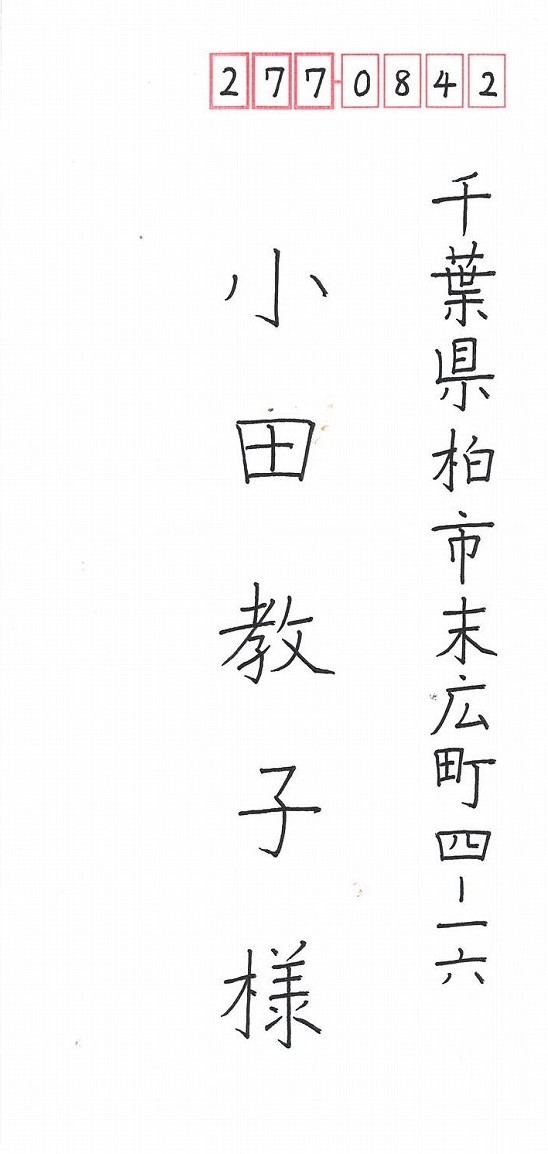 277-0842
千葉県柏市末広町四-一六
小田教子様